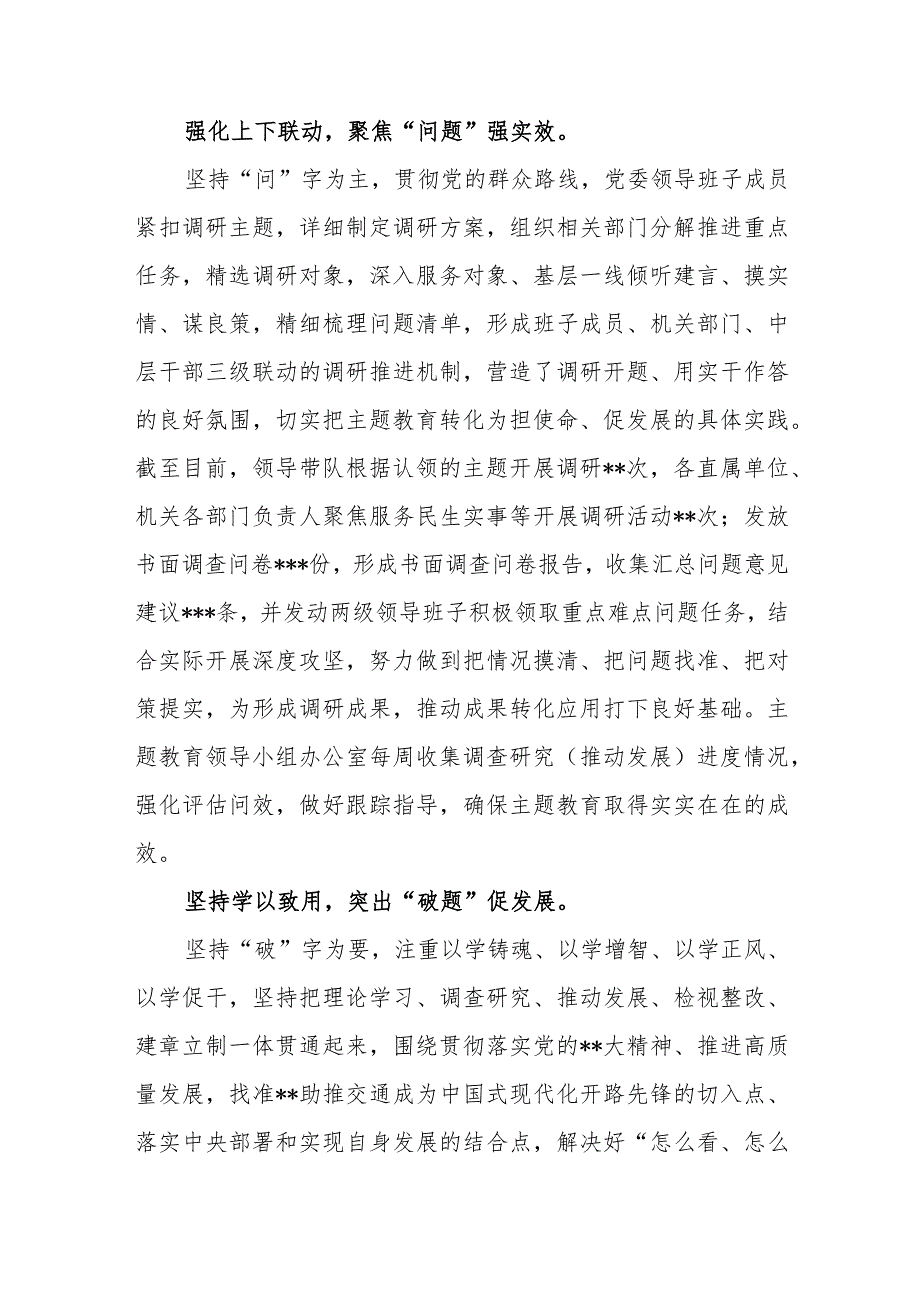 强化上下联动，聚焦“问题”强实效。
坚持“问”字为主，贯彻党的群众路线，党委领导班子成员
紧扣调研主题，详细制定调研方案，组织相关部门分解推进重点
任务，精选调研对象，深入服务对象、基层一线倾听建言、摸实
情、谋良策，精细梳理问题清单，形成班子成员、机关部门、中
层干部三级联动的调研推进机制，营造了调研开题、用实干作答
的良好氛围，切实把主题教育转化为担使命、促发展的具体实践。
截至目前，领导带队根据认领的主题开展调研**次，各直属单位、
机关各部门负责人聚焦服务民生实事等开展调研活动**次；发放
书面调查问卷***份，形成书面调查问卷报告，收集汇总问题意见
建议***条，并发动两级领导班子积极领取重点难点问题任务，结
合实际开展深度攻坚，努力做到把情况摸清、把问题找准、把对
策提实，为形成调研成果，推动成果转化应用打下良好基础。主
题教育领导小组办公室每周收集调查研究（推动发展）进度情况，
强化评估问效，做好跟踪指导，确保主题教育取得实实在在的成
效。
坚持学以致用，突出“破题”促发展。
坚持“破”字为要，注重以学铸魂、以学增智、以学正风、
以学促干，坚持把理论学习、调查研究、推动发展、检视整改、
建章立制一体贯通起来，围绕贯彻落实党的**大精神、推进高质
量发展，找准**助推交通成为中国式现代化开路先锋的切入点、
落实中央部署和实现自身发展的结合点，解决好“怎么看、怎么